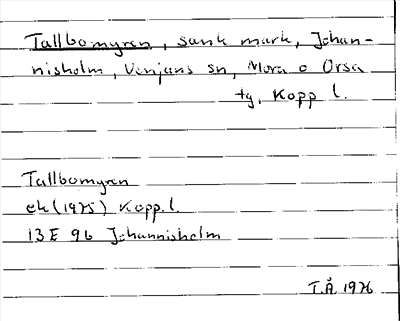 Tallbomyren, sank mark, Johan-
nisholm, Venjans sn, Mora o Orsa
tg, Kopp l.
Tallbomyren
ek (1975) Kopp. l.
13E 9b Johannisholm
T.Å 1976